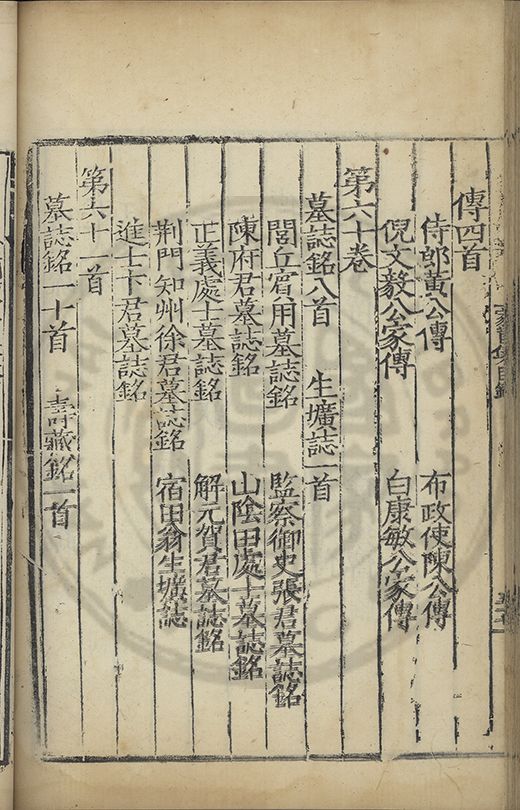 傳四首
侍郎黃公傳　布政使陳公傳
倪文毅公家傳　白康敏公家傳
第六十卷
墓誌銘八首　生壙誌一首
閭丘賓用墓誌銘　監察御史張君墓誌銘
陳府君墓誌銘　山陰田處士墓誌銘
正義處士墓誌銘　解元賀君墓誌銘
荆門知州徐君墓誌銘　宿田翁生壙誌
進士卞君墓誌銘
第六十一首
墓誌銘一十首　壽藏銘一首